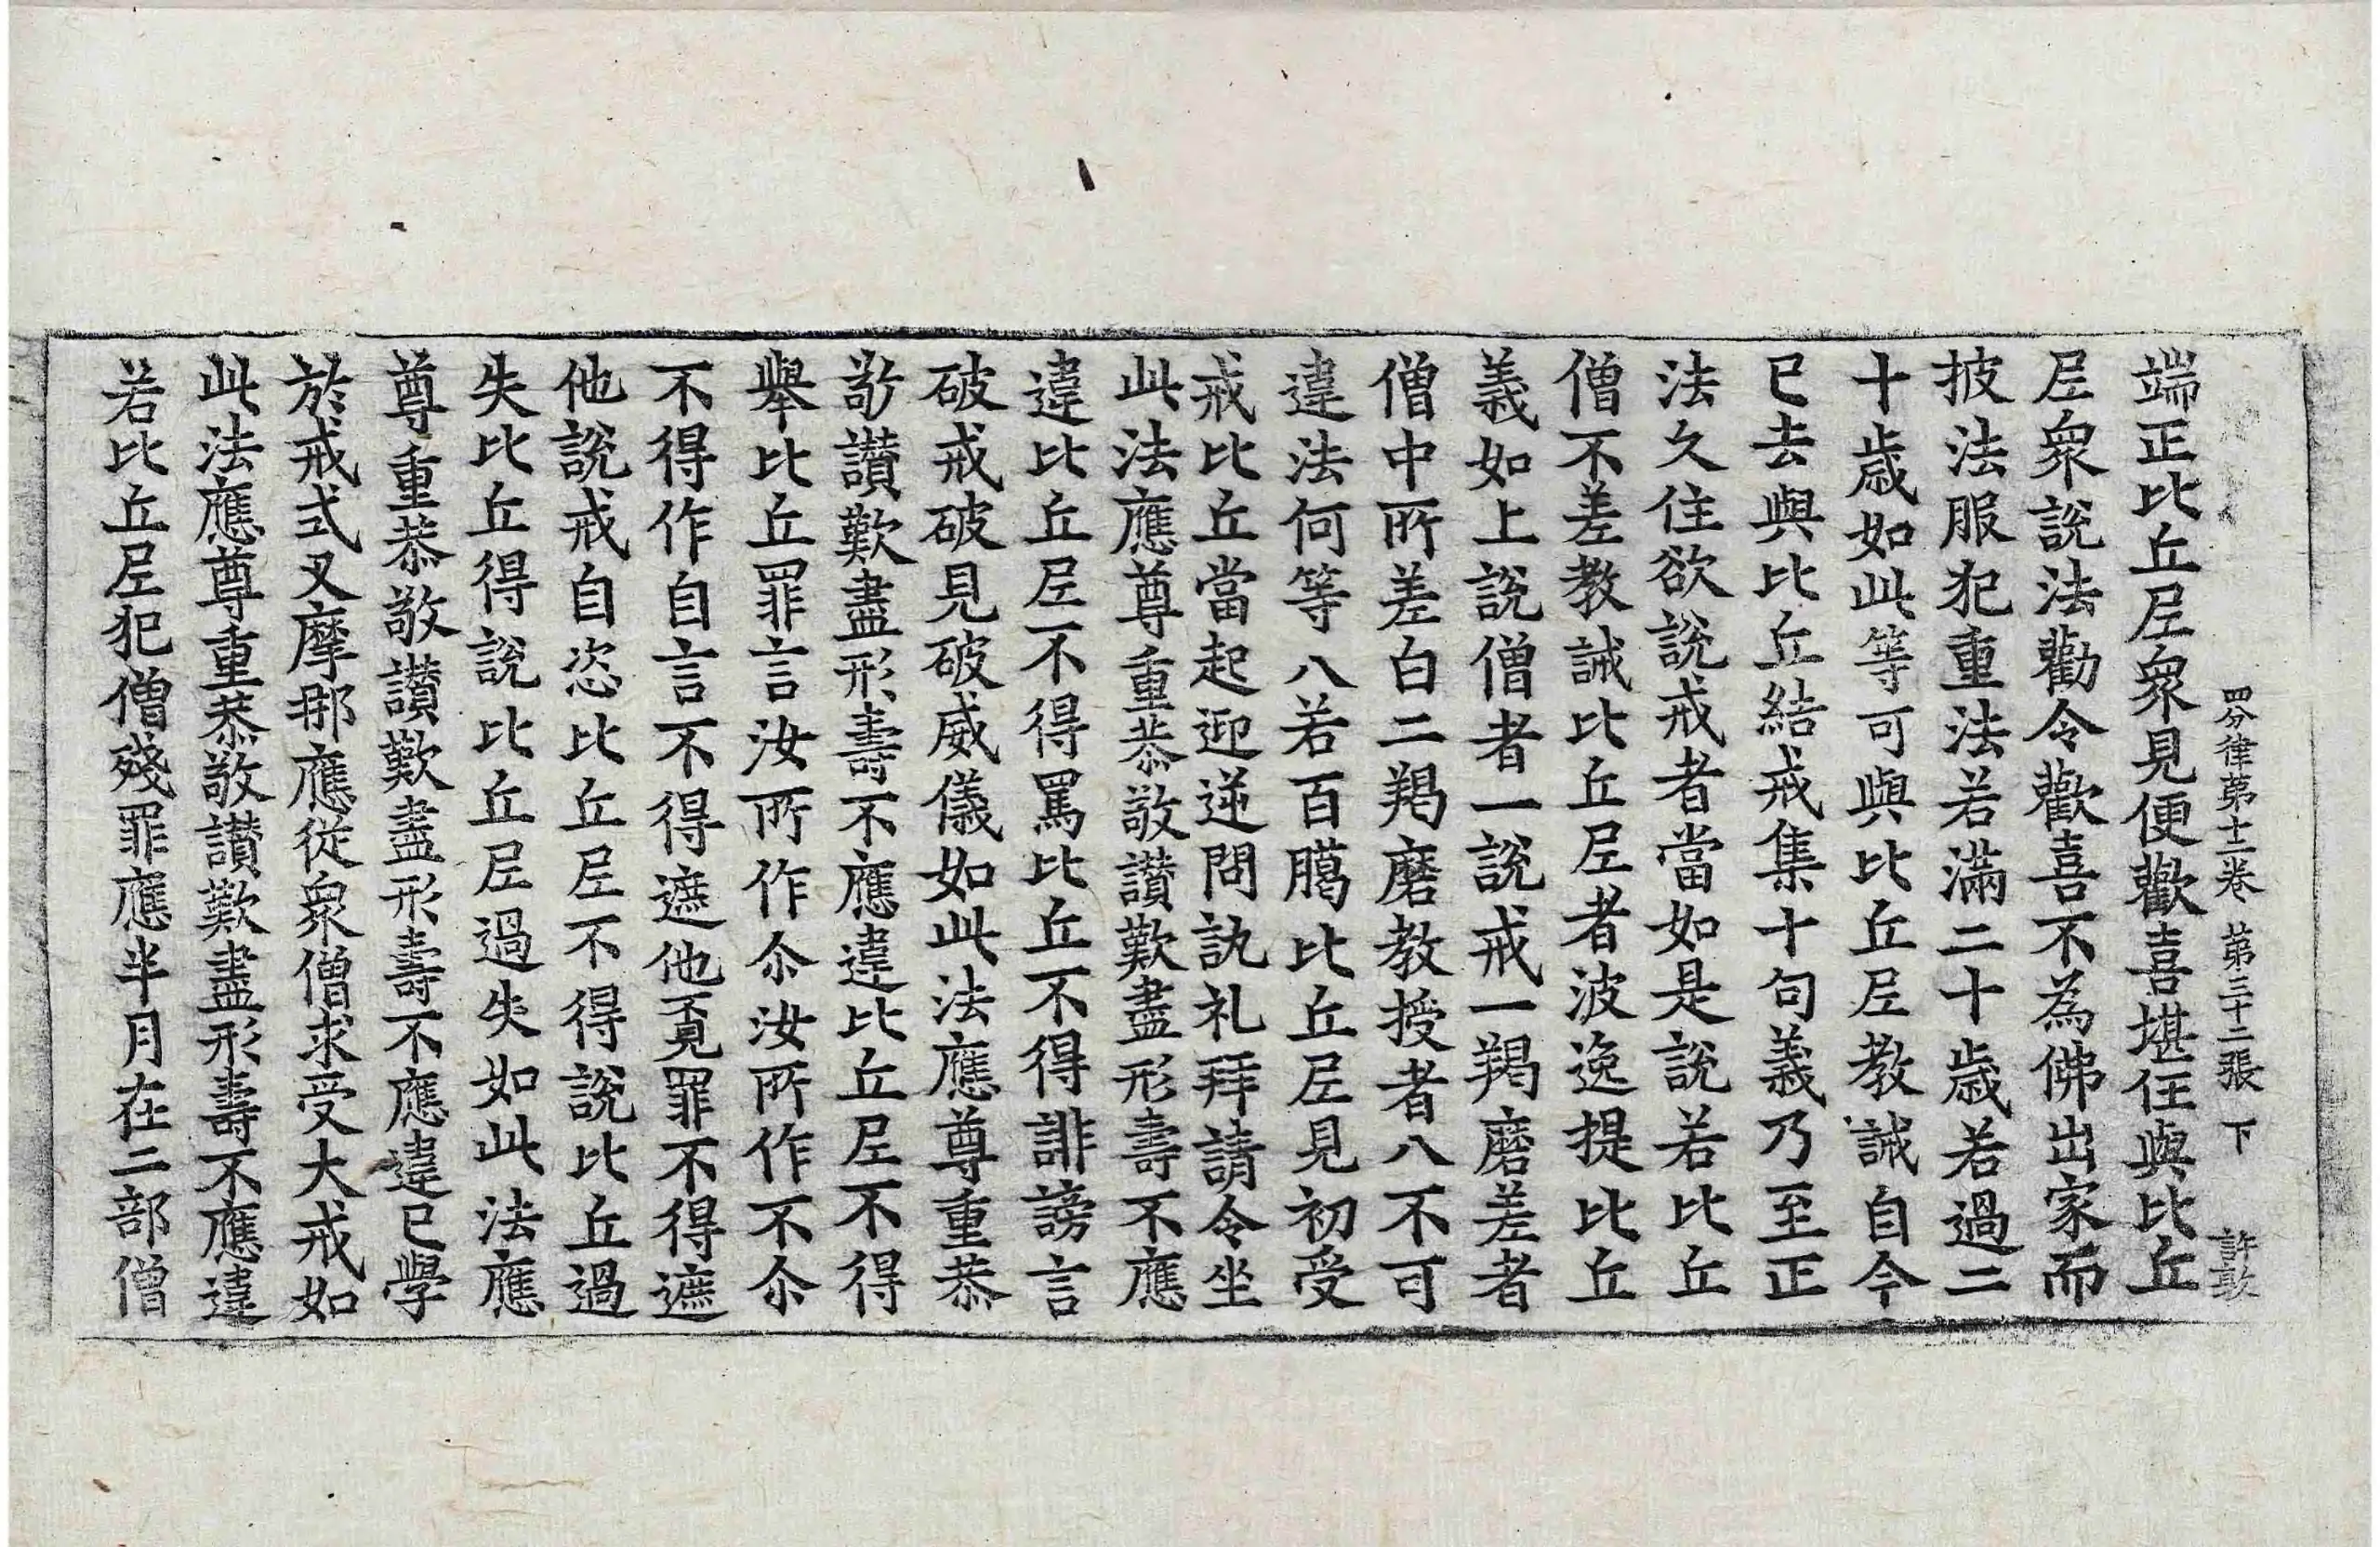 四分律第十二卷 第三十二張 下 許敢
端正比丘尼衆見便歡喜堪任與比丘
尼衆說法勸令歡喜不為佛出家而
披法服犯重法若滿二十歲若過二
十歲如此等可與比丘尼教誡自今
已去與比丘結戒集十句義乃至正
法久住欲說戒者當如是說若比丘
僧不差教誡比丘尼者波逸提比丘
義如上說僧者一說戒一羯磨差者
僧中所差白二羯磨教授者八不可
違法何等八若百臈比丘尼見初受
戒比丘當起迎逆問訊礼拜請令坐
此法應尊重恭敬讃歎盡形壽不應
違比丘尼不得罵比丘不得誹謗言
破戒破見破威儀如此法應尊重恭
敬讃歎盡形壽不應違比丘尼不得
舉比丘罪言汝所作尒汝所作不尒
不得作自言不得遮他覓罪不得遮
他說戒自恣比丘尼不得說比丘過
失比丘得說比丘尼過失如此法應
尊重恭敬讃歎盡形壽不應違已學
於戒式叉摩那應從衆僧求受大戒如
此法應尊重恭敬讃歎盡形壽不應違
若比丘尼犯僧殘罪應半月在二部僧